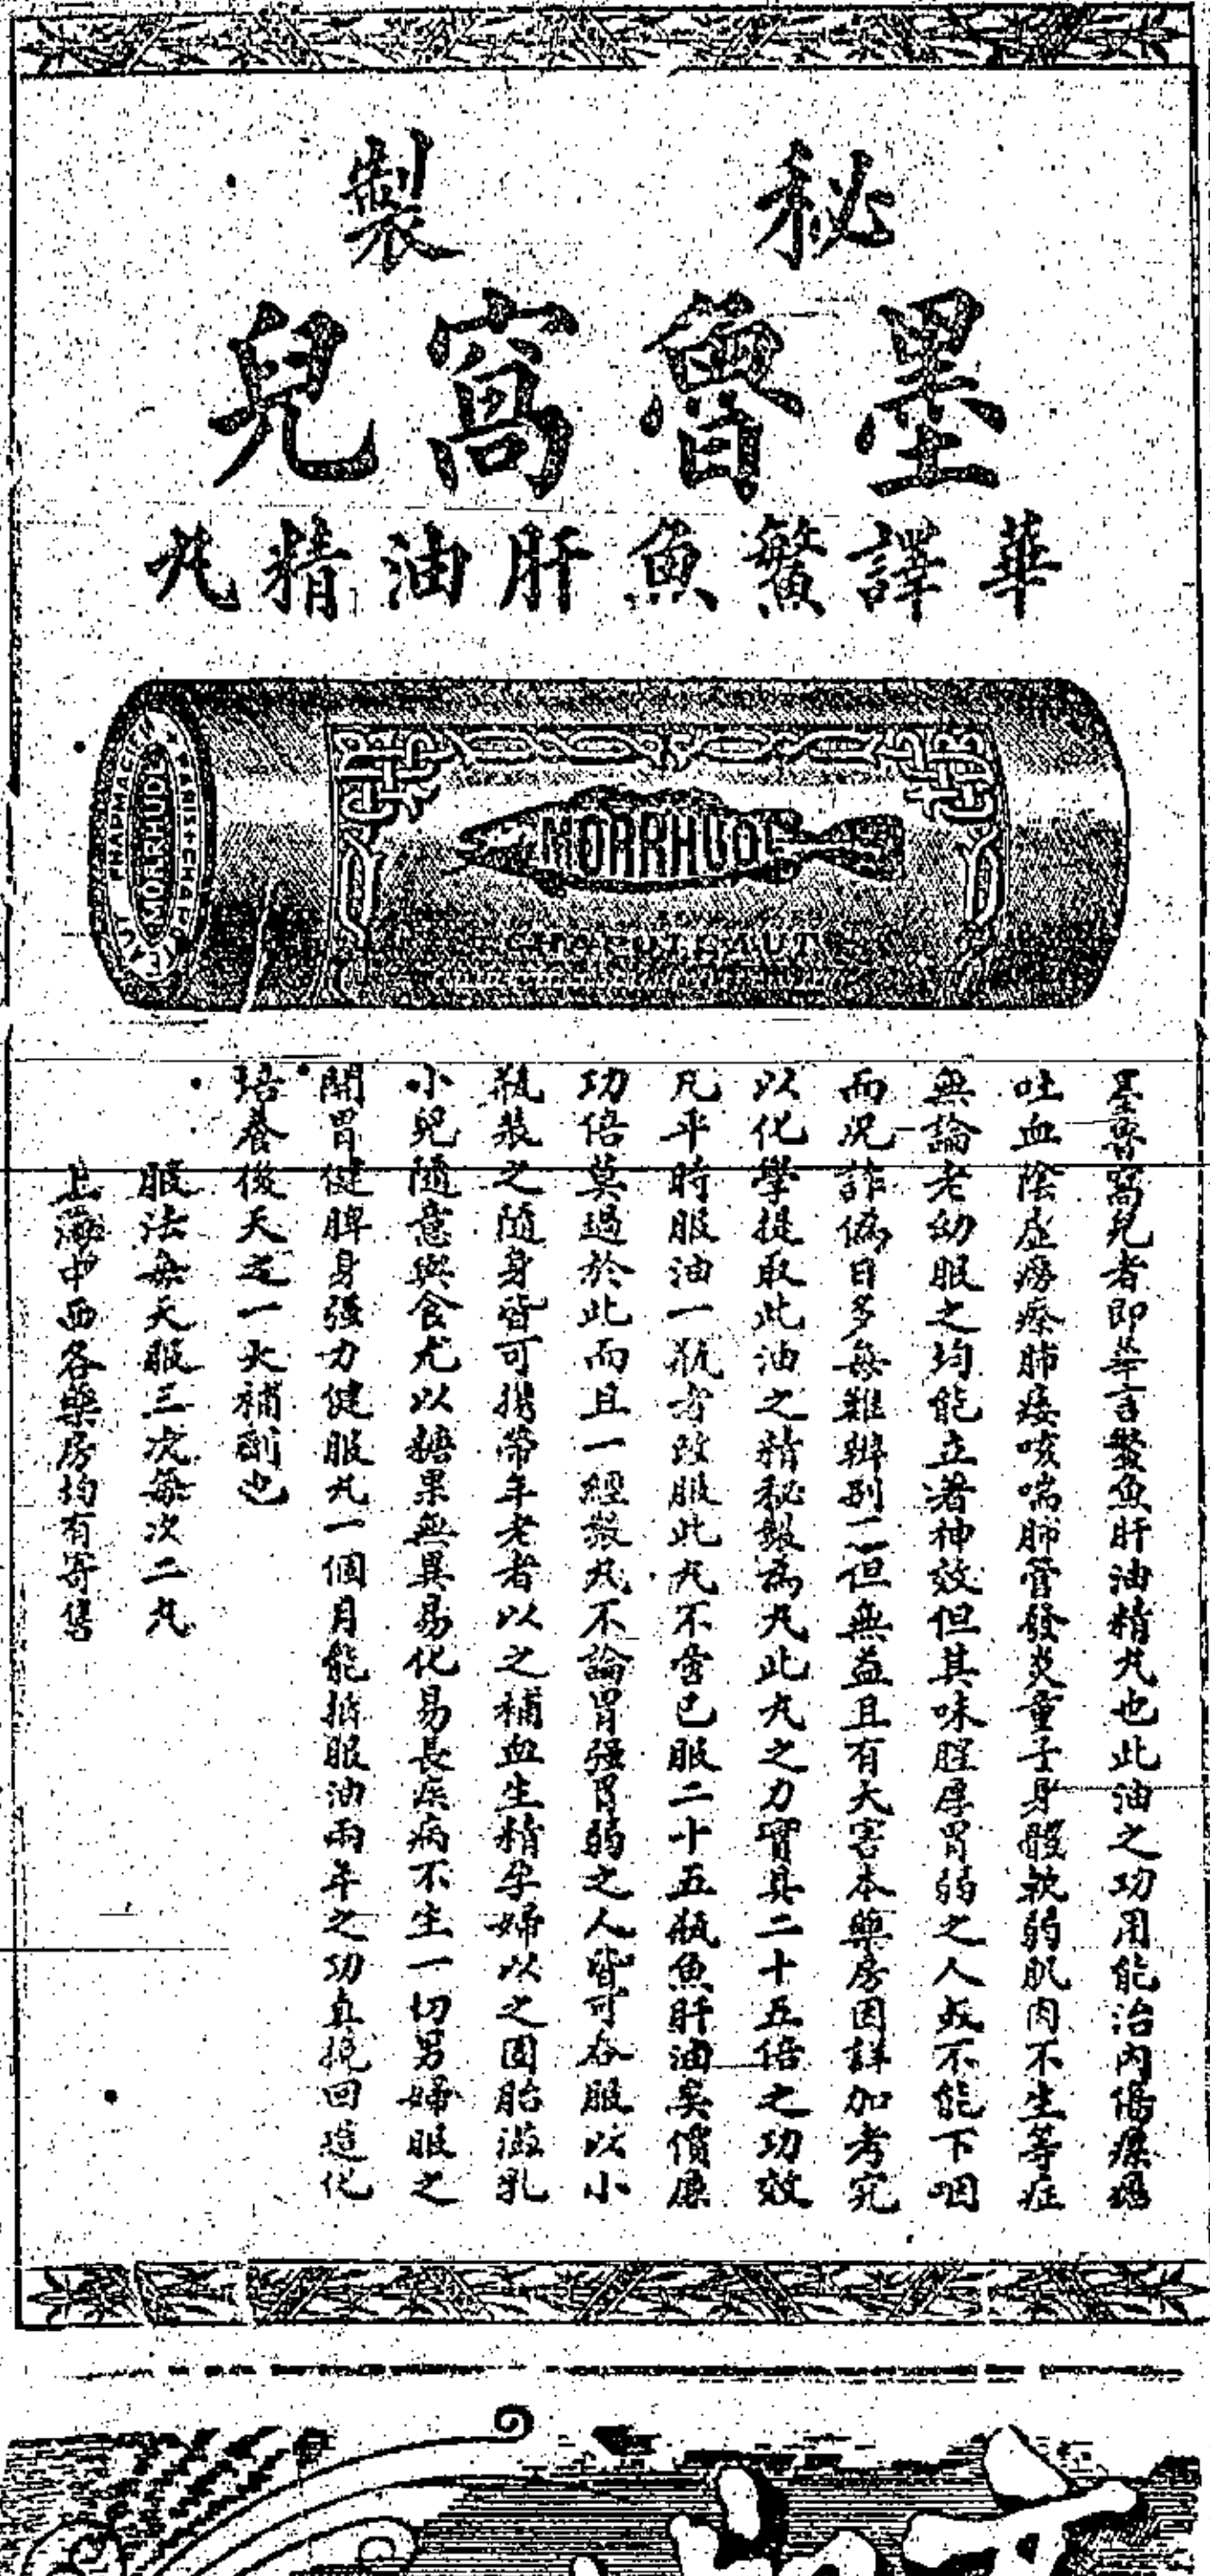 秘製
墨魯窩兒
華譯鰵魚肝油精丸
PHARMACIEN
PARIS
MORRHUOL
MORRHUOL
CHAPOTEAUT
墨魯窩兒者即華言鰵魚肝油精丸也此油之功用能治內傷瘰癧
吐血陰虛癆瘵肺痿咳喘肺管發炎童子身體軟弱肌肉不生等症
無論老幼服之均能立著神效但其味腥厚胃弱之人或不能下咽
而況詐偽日多每難辨別不但無益且有大害本藥房因詳加考究
以化學提取此油之精秘製為丸此丸之力實具二十五倍之功效
凡平時服油一瓶者改服此丸不啻已服二十五瓶魚肝油矣價廉
功倍莫過於此而且一經製丸不論胃强胃弱之人皆可吞服以小
瓶裝之隨身皆可携帶年老者以之補血生精孕婦以之固胎滋乳
小兒隨意與食尤以糖果無異易化易長疾病不生一切男婦服之
開胃健脾身强力健服丸一個月能抵服油兩年之功真挽回造化
培養後天之一大補劑也
服法每天服三次每次二丸
上海中西各藥房均有寄售